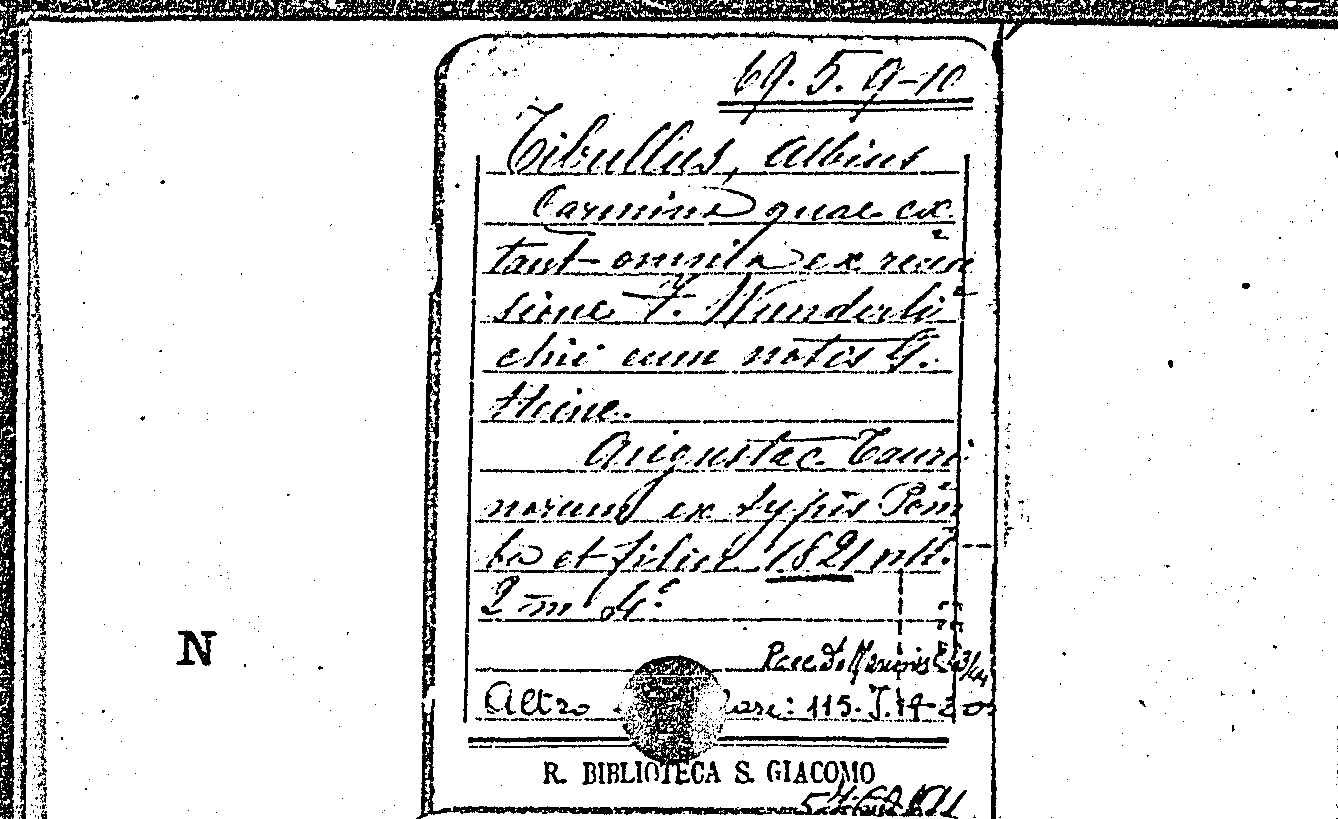 69. 5. 9-10
Tibullus, Albius
Carmina quae ex
tant omnia ex recen
sione F. Wunderli
chii cum notis G.
Heine.
Augustae Tauri
norum ex typis Pom
ba et filior 1821 vol.
2 in 4.°
Race. De Marinis
N
Altro 115. J. 14-
R. BIBLIOTECA S. GIACOMO